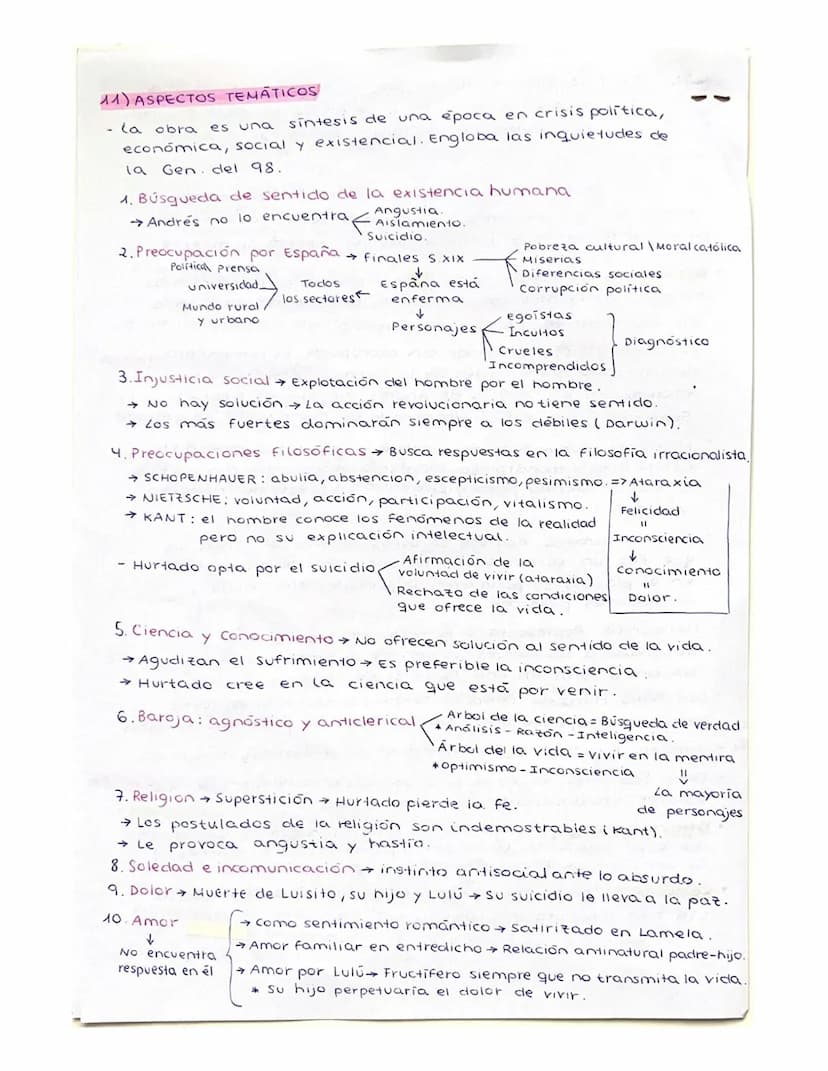 11) ASPECTOS TEMÁTICOS
- La obra es una síntesis de una época en crisis política,
económica, social y existencial. Engloba las inquietudes de
la Gen. del 98.
1. Búsqueda de sentido de la existencia humana
→ Andrés no lo encuentra
Angustia.
Aislamiento.
Suicidio.
2. Preocupación por España → Finales S. XIX
Pobreza cultural \ Moral católica
Miserias
Diferencias sociales
Corrupción política
↓
España está
enferma
← Todos
los sectores
Política, Prensa
universidad
Mundo rural
y urbano
↓
Personajes
egoístas
Incultos
Crueles
Incomprendidos
Diagnóstico
3. Injusticia social → Explotación del hombre por el hombre.
→ No hay solución → La acción revolucionaria no tiene sentido.
→ Los más fuertes dominarán siempre a los débiles (Darwin).
4. Preocupaciones filosóficas → Busca respuestas en la filosofía irracionalista.
→ SCHOPENHAUER: abulia, abstención, escepticismo, pesimismo. => Ataraxia
→ NIETZSCHE: voluntad, acción, participación, vitalismo.
→ KANT: el hombre conoce los fenómenos de la realidad
pero no su explicación intelectual.
↓
Felicidad
"
Inconsciencia
↓
Conocimiento
"
Dolor.
- Hurtado opta por el suicidio
Afirmación de la
voluntad de vivir (ataraxia)
Rechazo de las condiciones
que ofrece la vida.
5. Ciencia y Conocimiento → No ofrecen solución al sentido de la vida.
→ Agudizan el sufrimiento → Es preferible la inconsciencia.
→ Hurtado cree en la ciencia que está por venir.
6. Baroja: agnóstico y anticlerical
Árbol de la ciencia = Búsqueda de verdad
* Análisis - Razón - Inteligencia.
Árbol del la vida = vivir en la mentira
* Optimismo - Inconsciencia
⇓
La mayoría
de personajes
7. Religión → Superstición → Hurtado pierde la fe.
→ Los postulados de la religión son indemostrables (Kant).
→ Le provoca angustia y hastío.
8. Soledad e incomunicación → instinto antisocial ante lo absurdo.
9. Dolor → Muerte de Luisito, su hijo y Lulú → Su suicidio le lleva a la paz.
10. Amor
↓
No encuentra
respuesta en él
→ Como sentimiento romántico → Satirizado en Lamela.
→ Amor familiar en entredicho → Relación antinatural padre-hijo.
→ Amor por Lulú → Fructífero siempre que no transmita la vida.
* Su hijo perpetuaría el dolor de vivir.